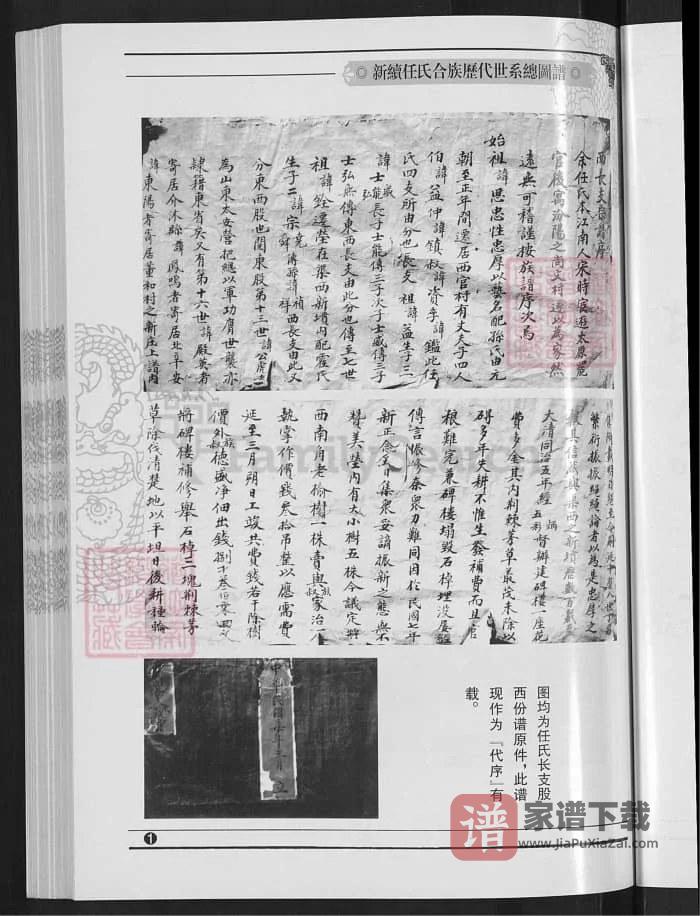 新續任氏合族歷代世系總圖譜
西長支畨譜序
余任氏本江南人宋時宦遊太原鹿
官後寓汾陽之尚文村遂以為家然
遠無可稽謹按族譜序次焉
始祖諱思忠性忠厚以藝名配孫氏由元
朝至正年間遷居西官村有丈夫子四人
伯諱益仲諱鎮叔諱資季諱鑑此任
氏四支所由分也長支祖諱益生子三
諱士能長子士能傳三子次子士威傳三子
士弘無傳東西長支由此分也傳至七世
祖諱銓遷塋在渠西新墳內配霍氏
生子二諱宗
分東西股也閏東股第十三世諱公虎
為山東太安營把總以軍功膺世襲亦
隸籍東省矣又有第十六世諱殿英者
寄居介休縣諱鳳鳴者寄居北辛安
諱東陽者寄居董和村之新庄上譜內
繁衍振振繩繩論者以為是忠厚之
大清同治五年經
費多金其內荊棘茅草最院未除以
碍多年失耕不惟生發補費而且官
糧難完兼碑樓塌毀石棹埋沒屢
傳言振修奈眾力難同因於民國七年
新正念三日集眾妥議振新之態與不
贊美塋內有大小樹五株今議定將
西南角老榆樹一株賣與族叔家治一人
執掌作價錢叁拾吊整以應需費
延至三月朔日工竣共費錢若干除樹
價外族叔德盛淨佃出錢捌
將碑樓補修舉石棹三塊荊棘茅
草除伐清楚地以平坦日後耕種輪
中華民國
图均为任氏长支股
西份谱原件，此谱
现作为『代序』有
载。
1
FamilySearch
谱
家谱下载
www.JiaPuXiaZai.com